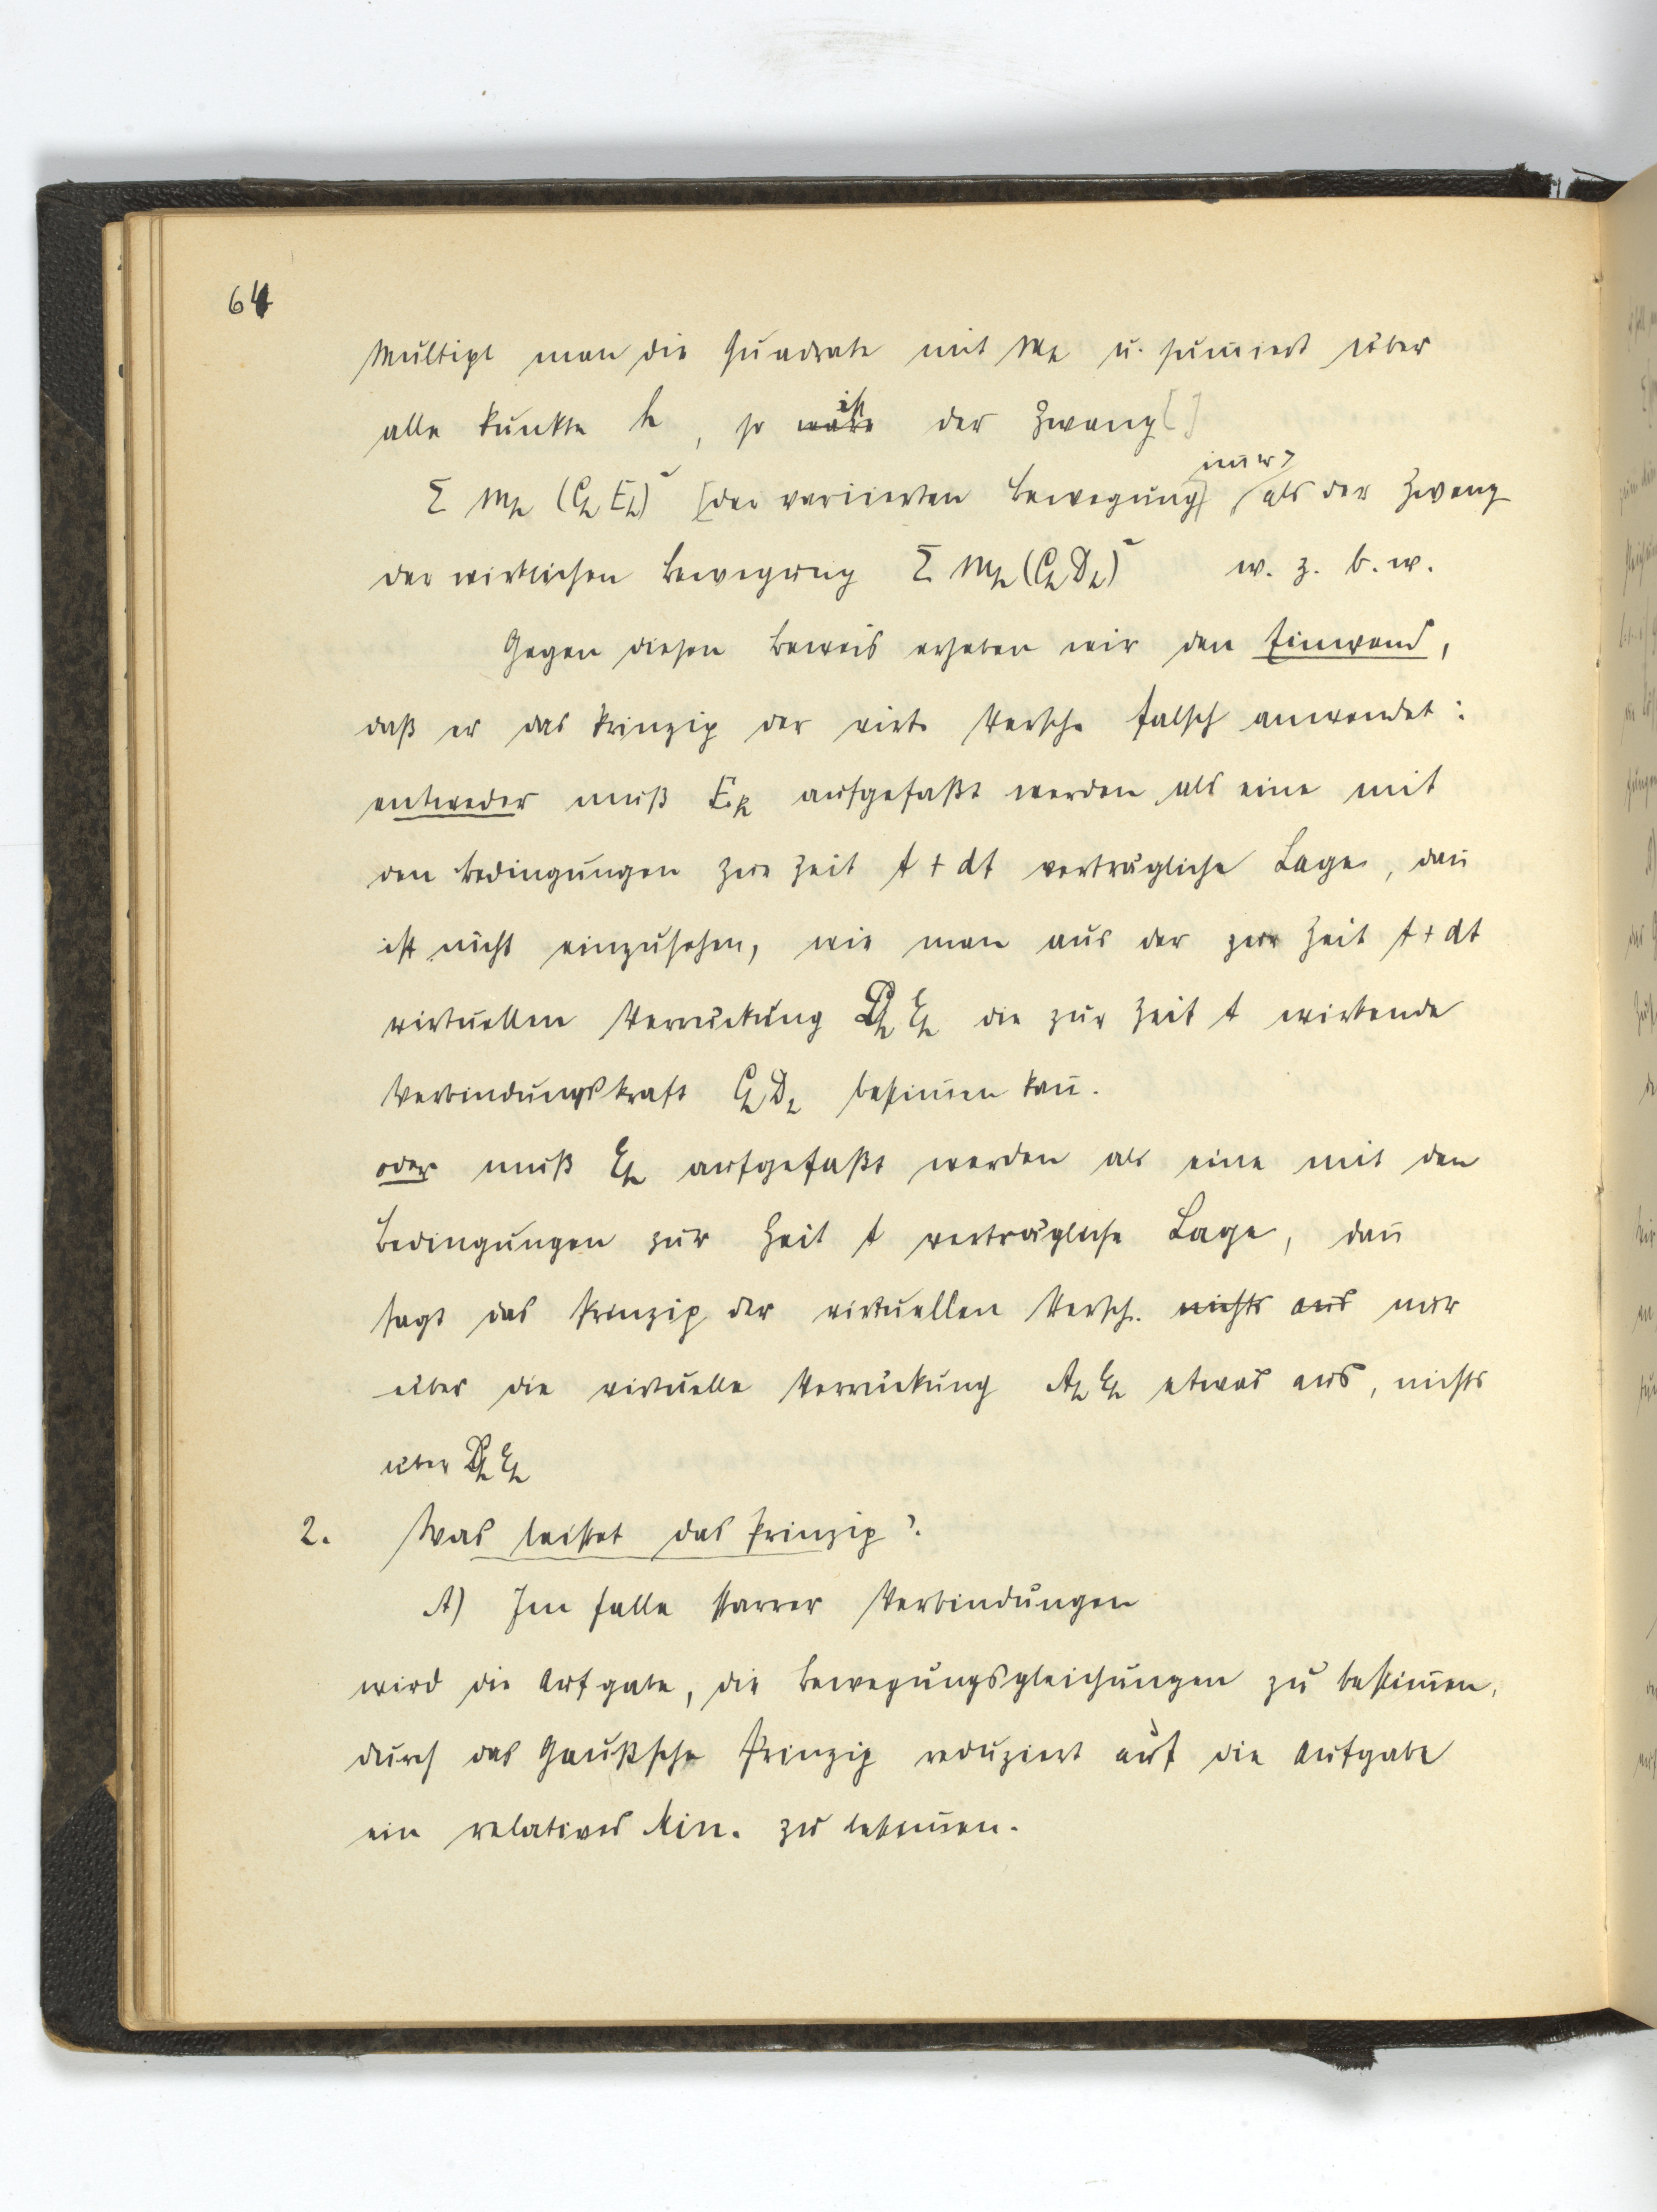 64
Multipl man die Quadrate mit m_h u. sum̄iert über
alle Punkte h, so ist der Zwang []
Σ m_h (C_h E_h)² [der variierten Bewegung] im̄er > als der Zwang
der wirklichen Bewegung Σ m_h (C_h D_h)² w. z. b. w.
Gegen diesen Beweis erheben wir den Einwand,
daß er das Prinzip der virt. Versch. falsch anwendet:
entweder muß E_h aufgefaßt werden als eine mit
den Bedingungen zur Zeit t + dt verträgliche Lage, dan̄
ist nicht einzusehen, wie man aus der zur Zeit t + dt
virtuellen Verrückung D_h E_h die zur Zeit t wirkende
Verbindungskraft C_h D_h bestim̄en kan̄.
oder muß E_h aufgefaßt werden als eine mit den
Bedingungen zur Zeit t verträgliche Lage, dan̄
sagt das Prinzip der virtuellen Versch. nichts aus nur
über die virtuelle Verrückung A_h E_h etwas aus, nichts
über D_h E_h
2. Was leistet das Prinzip?
A) Im Falle starrer Verbindungen
wird die Aufgabe, die Bewegungsgleichungen zu bestim̄en,
durch das Gaußsche Prinzip reduziert auf die Aufgabe
ein relatives Min. zu bestim̄en.